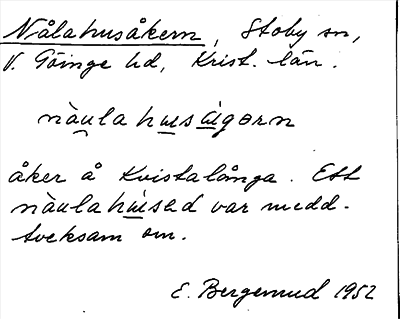 Nålahusåkern, Stoby sn,
V. Göinge hd, Krist. län.
nàu̯la hu̲s áigərn
åker å Kvistalånga. Ett
nàulahu̲sed var medd.
tveksam om.
E. Bergemud 1952